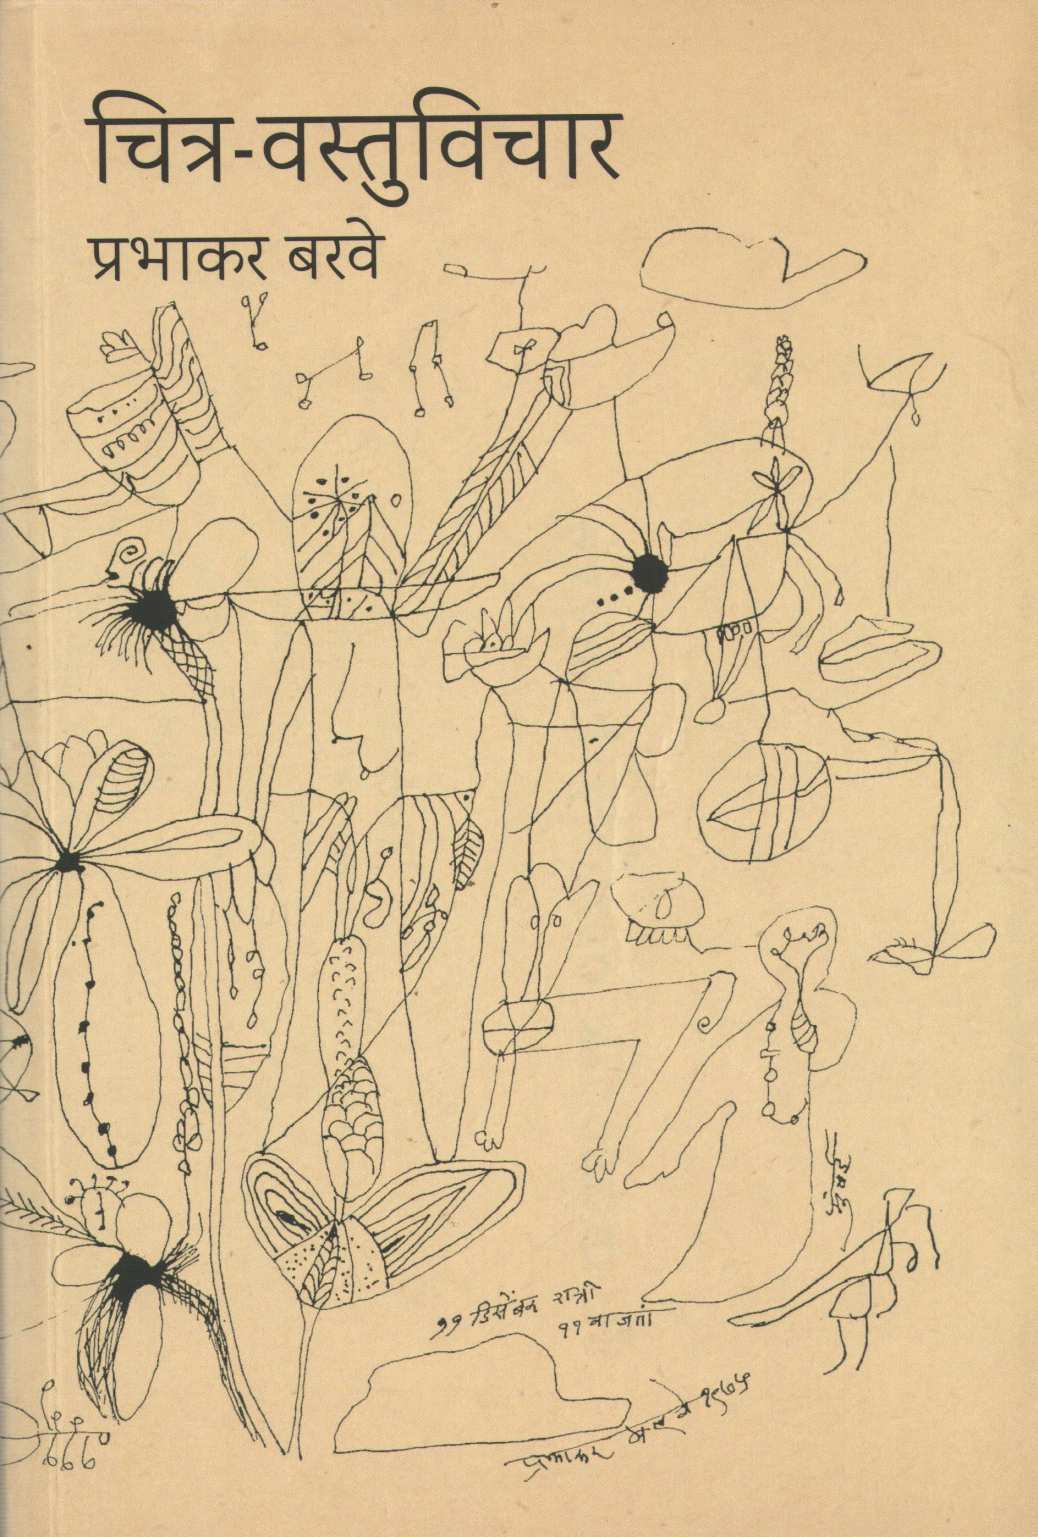 चित्र-वस्तुविचार
प्रभाकर बरवे
११ डिसेंबर रात्री
११ वाजतां
प्रभाकर बरवे १९७५